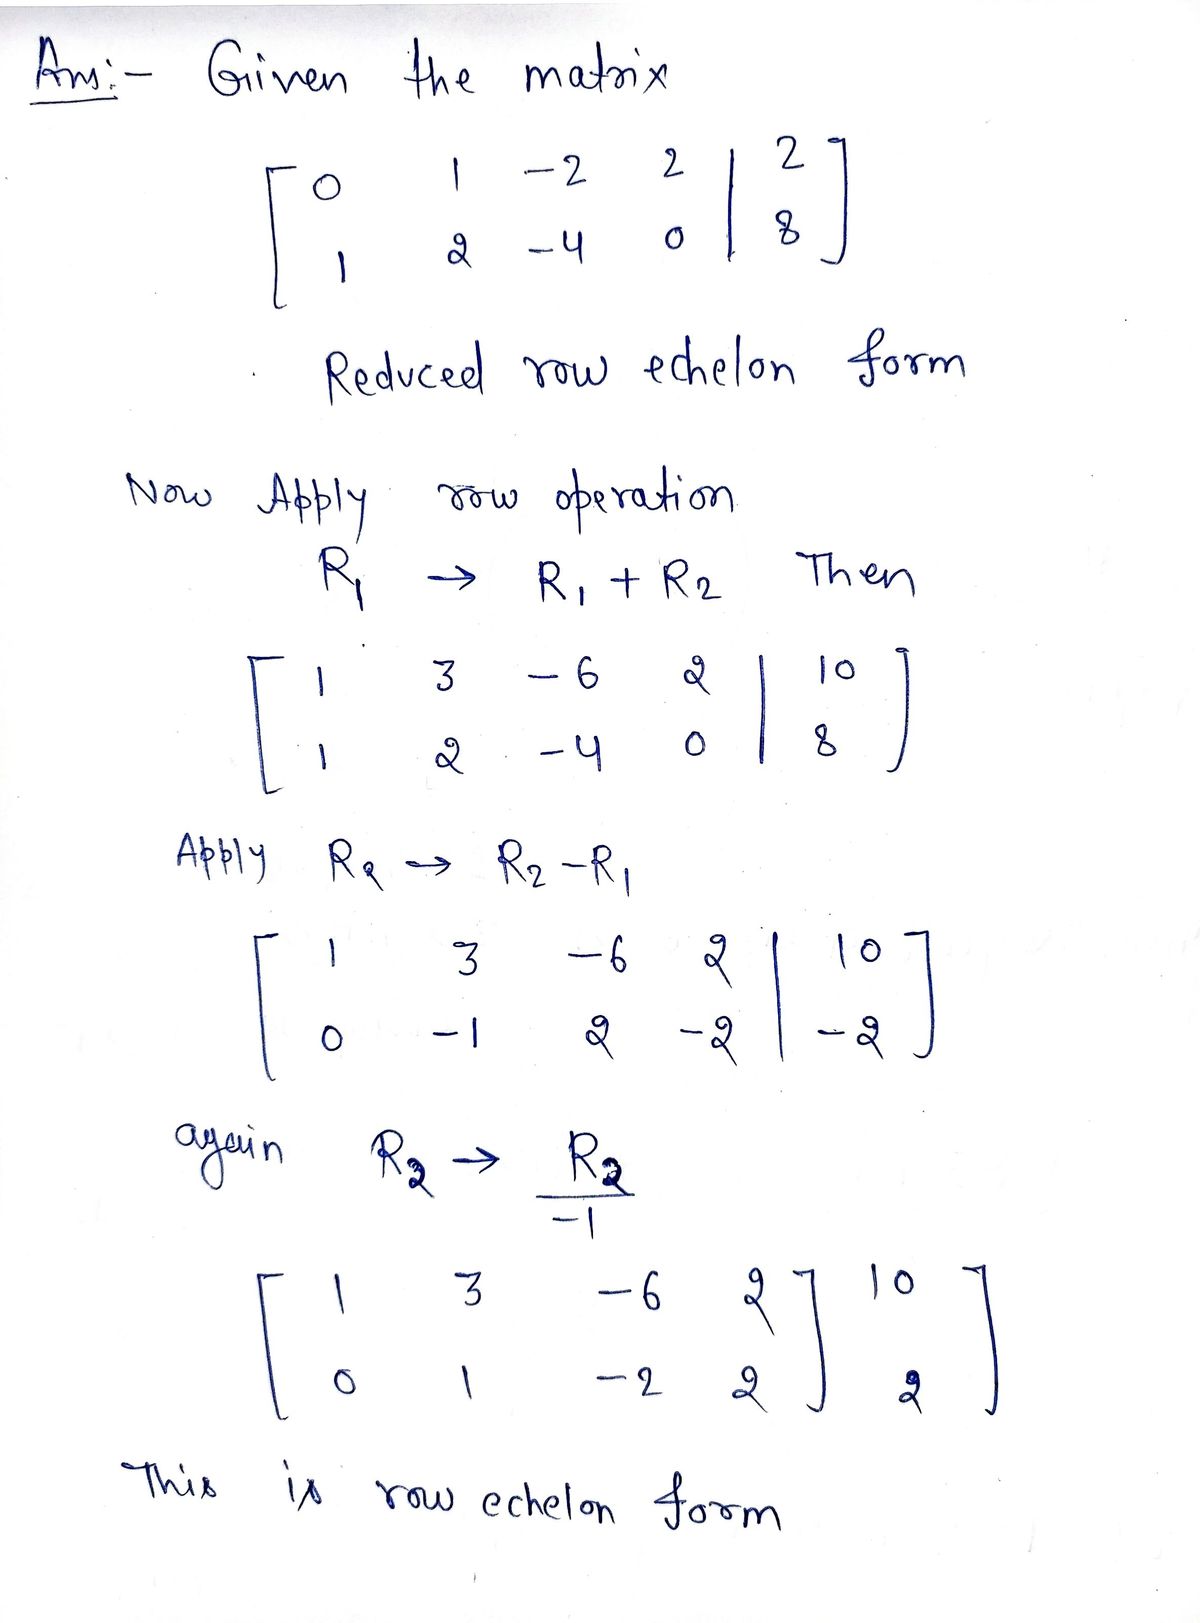 Ans:- Given the matrix
[ 0 1 -2 2 | 2 ]
[ 1 2 -4 0 | 8 ]
Reduced row echelon form
Now Apply row operation
R₁ → R₁ + R₂ Then
[ 1 3 -6 2 | 10 ]
[ 1 2 -4 0 | 8 ]
Apply R₂ → R₂ - R₁
[ 1 3 -6 2 | 10 ]
[ 0 -1 2 -2 | -2 ]
again R₂ → R₂
-1
[ 1 3 -6 2 ] 10 ]
[ 0 1 -2 2 ] 2 ]
This is row echelon form